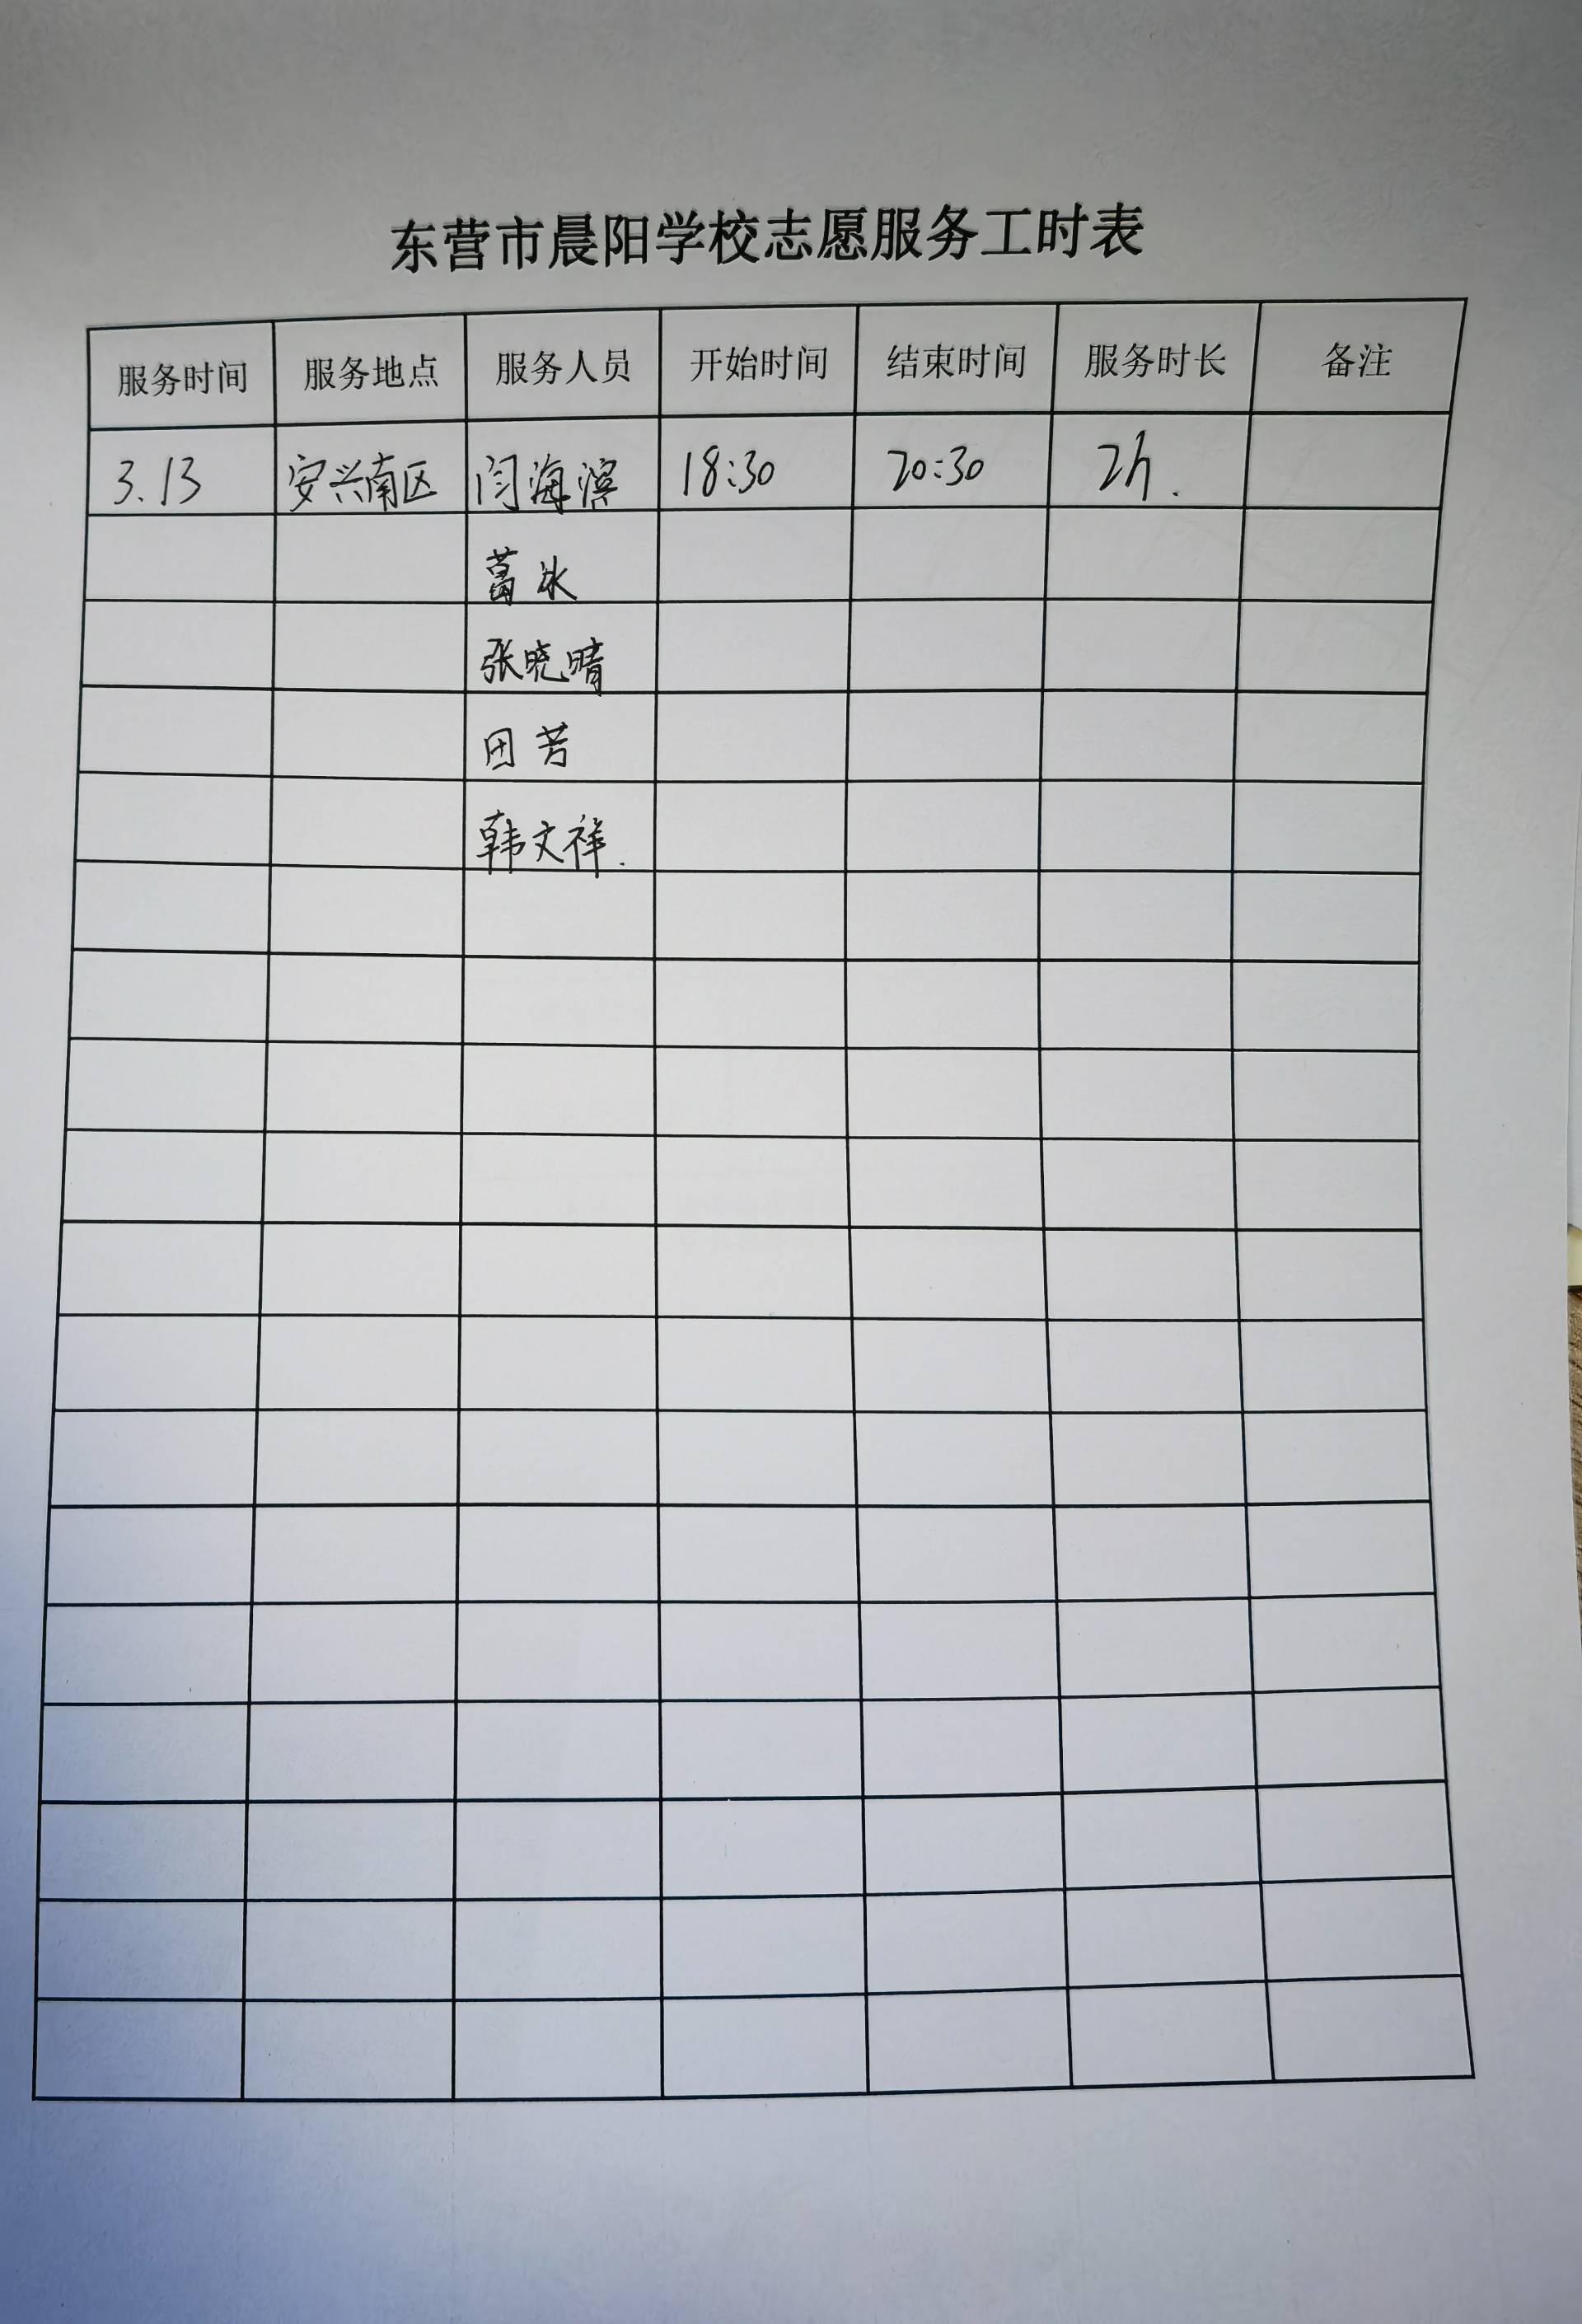 东营市晨阳学校志愿服务工时表
服务时间 服务地点 服务人员 开始时间 结束时间 服务时长 备注
3.13 安兴南区 闫海滨 18:30 20:30 2h.
葛冰
张晓晴
田芳
韩文祥.